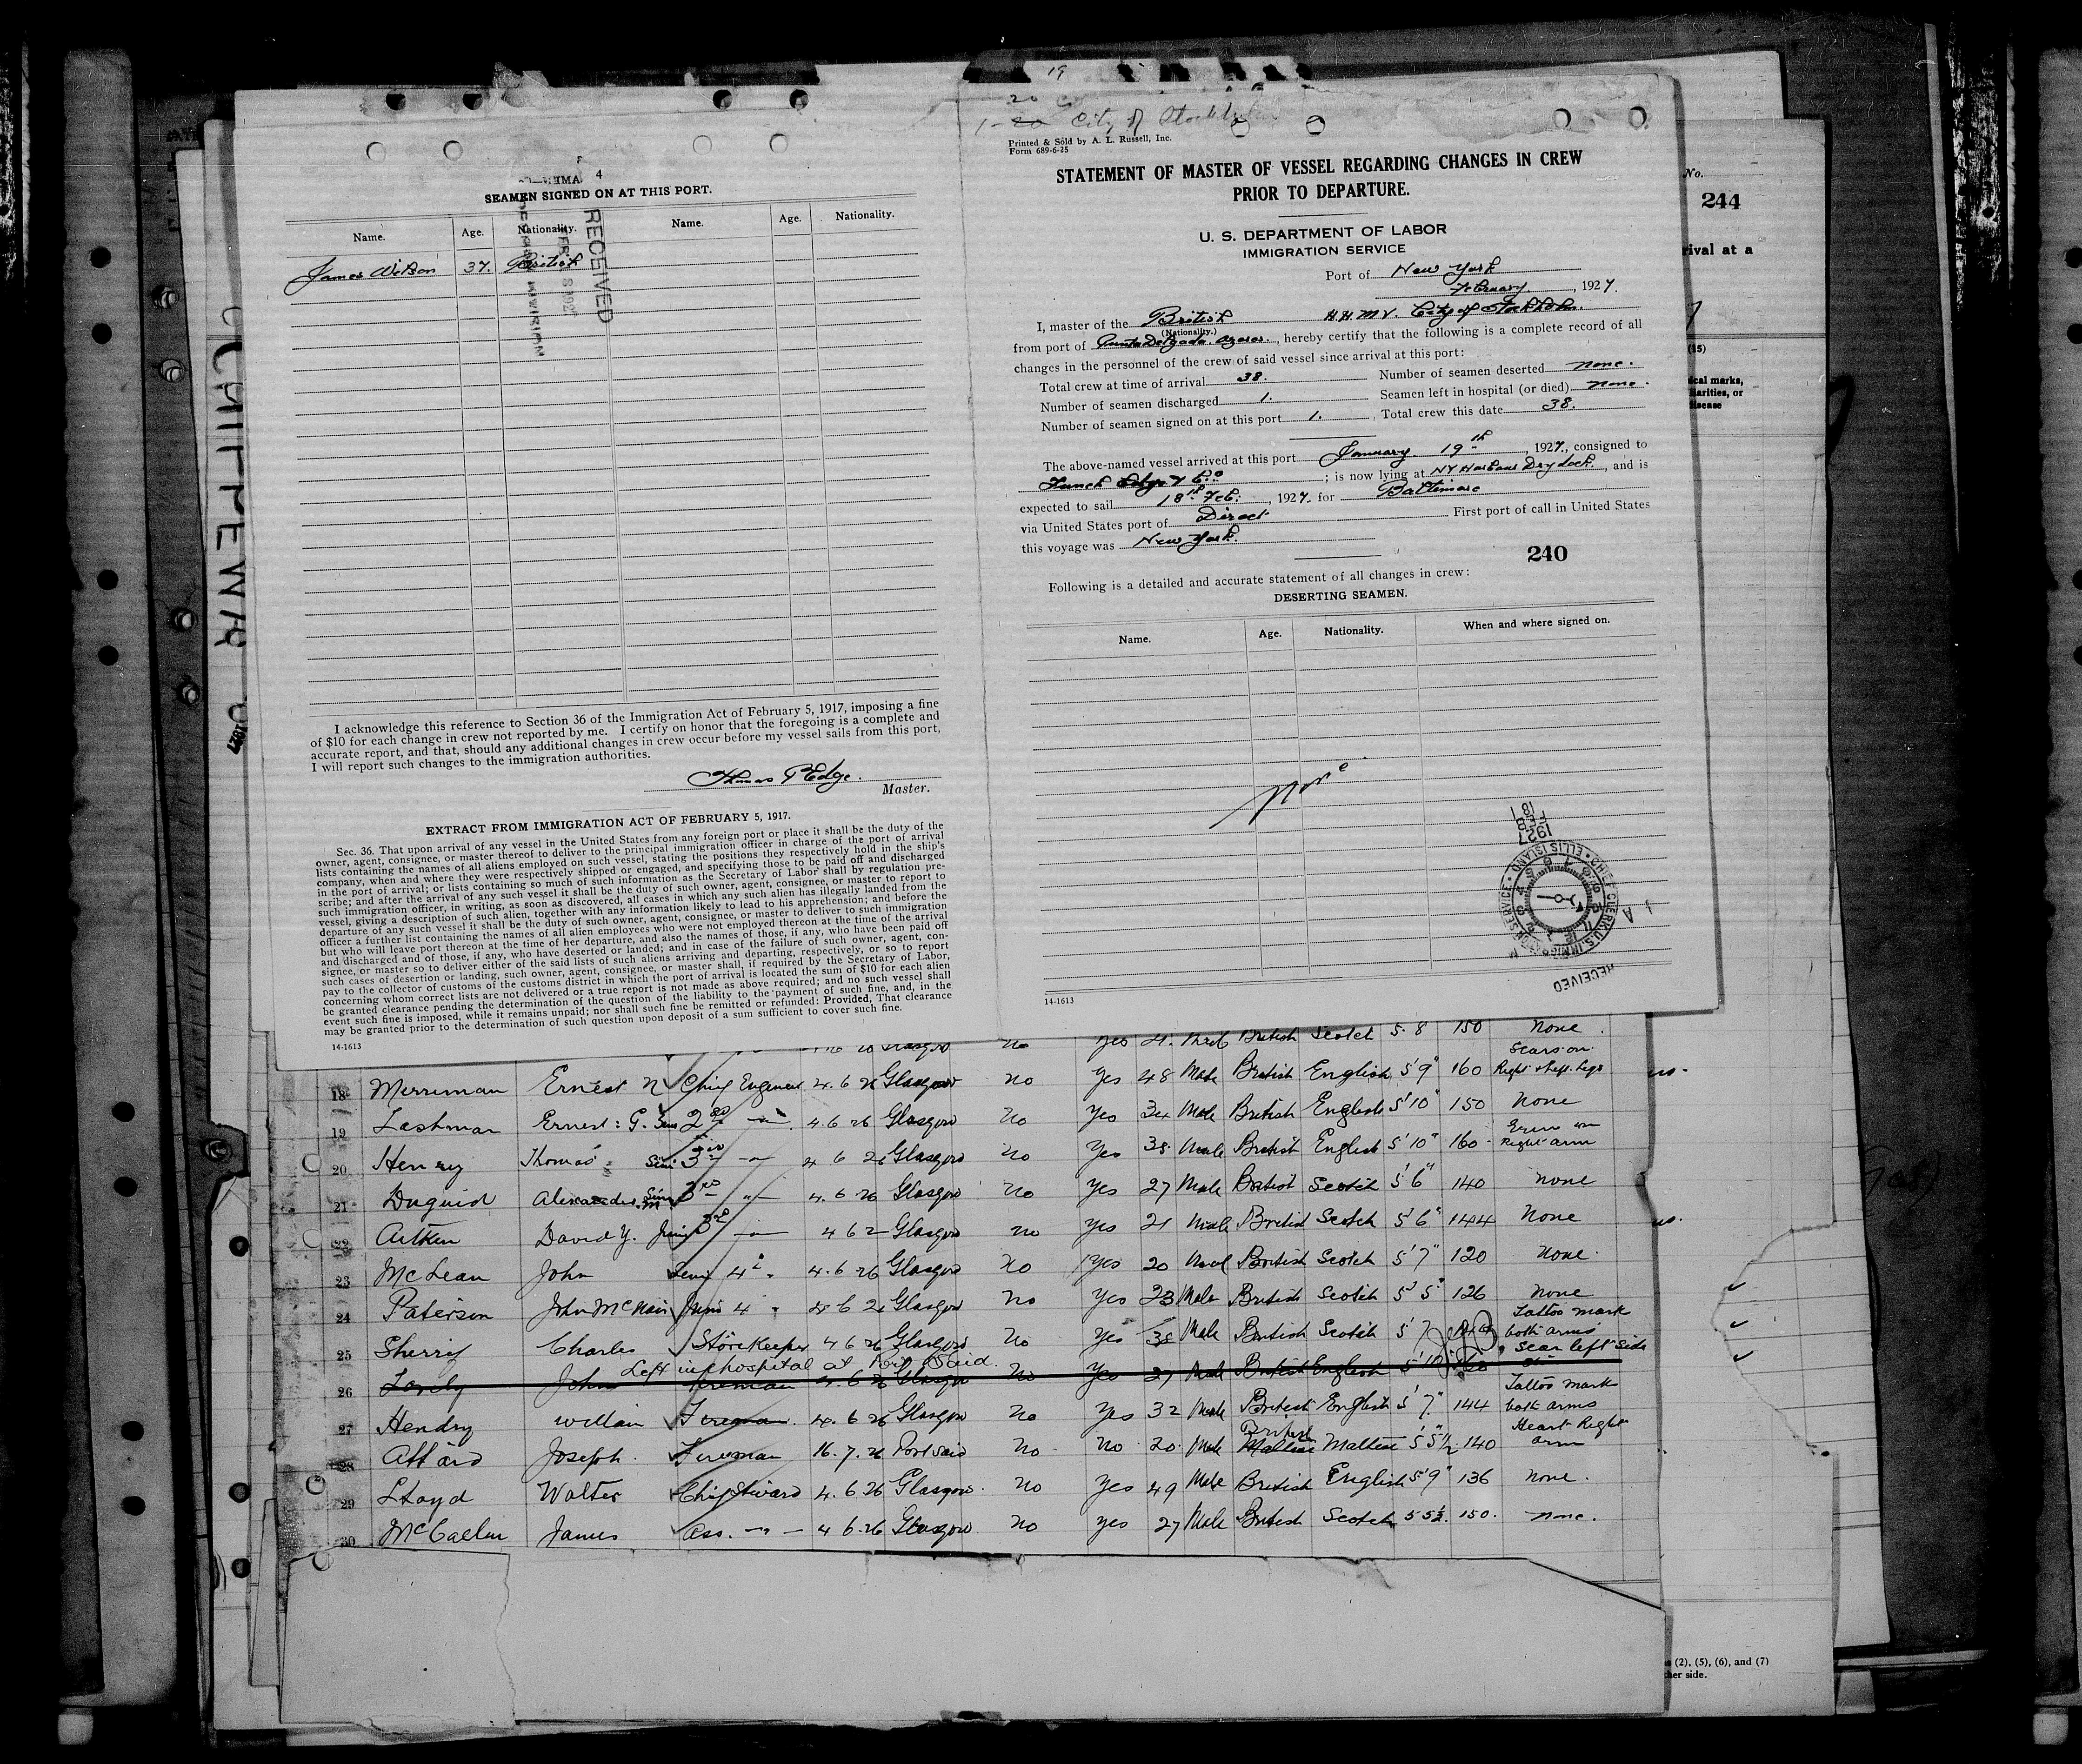 4
SEAMEN SIGNED ON AT THIS PORT.
Name. Age. Nationality. Name. Age. Nationality.
James Wilson 37. British
RECEIVED
I acknowledge this reference to Section 36 of the Immigration Act of February 5, 1917, imposing a fine
of $10 for each change in crew not reported by me. I certify on honor that the foregoing is a complete and
accurate report, and that, should any additional changes in crew occur before my vessel sails from this port,
I will report such changes to the immigration authorities.
Thomas P Edge.
Master.
EXTRACT FROM IMMIGRATION ACT OF FEBRUARY 5, 1917.
Sec. 36. That upon arrival of any vessel in the United States from any foreign port or place it shall be the duty of the
owner, agent, consignee, or master thereof to deliver to the principal immigration officer in charge of the port of arrival
lists containing the names of all aliens employed on such vessel, stating the positions they respectively hold in the ship's
company, when and where they were respectively shipped or engaged, and specifying those to be paid off and discharged
in the port of arrival; or lists containing so much of such information as the Secretary of Labor shall by regulation pre-
scribe; and after the arrival of any such vessel it shall be the duty of such owner, agent, consignee, or master to report to
such immigration officer, in writing, as soon as discovered, all cases in which any such alien has illegally landed from the
vessel, giving a description of such alien, together with any information likely to lead to his apprehension; and before the
departure of any such vessel it shall be the duty of such owner, agent, consignee, or master to deliver to such immigration
officer a further list containing the names of all alien employees who were not employed thereon at the time of the arrival
but who will leave port thereon at the time of her departure, and also the names of those, if any, who have been paid off
and discharged and of those, if any, who have deserted or landed; and in case of the failure of such owner, agent, con-
signee, or master so to deliver either of the said lists of such aliens arriving and departing, respectively, or so to report
such cases of desertion or landing, such owner, agent, consignee, or master shall, if required by the Secretary of Labor,
pay to the collector of customs of the customs district in which the port of arrival is located the sum of $10 for each alien
concerning whom correct lists are not delivered or a true report is not made as above required; and no such vessel shall
be granted clearance pending the determination of the question of the liability to the payment of such fine, and, in the
event such fine is imposed, while it remains unpaid; nor shall such fine be remitted or refunded: Provided, That clearance
may be granted prior to the determination of such question upon deposit of a sum sufficient to cover such fine.
14-1613
19
20
1-20 City of Stockholm
Printed & Sold by A. L. Russell, Inc.
Form 689-6-25
STATEMENT OF MASTER OF VESSEL REGARDING CHANGES IN CREW
PRIOR TO DEPARTURE.
U. S. DEPARTMENT OF LABOR
IMMIGRATION SERVICE
Port of New York
February, 1927.
I, master of the British City of Stockholm.
(Nationality.)
from port of Punta Delgada. Azores., hereby certify that the following is a complete record of all
changes in the personnel of the crew of said vessel since arrival at this port:
Total crew at time of arrival 38. Number of seamen deserted none.
Number of seamen discharged 1. Seamen left in hospital (or died) none.
Number of seamen signed on at this port 1. Total crew this date 38.
The above-named vessel arrived at this port January 19th, 1927., consigned to
Funch Edye & Co; is now lying at NY Harbour Dry dock., and is
expected to sail 18th Feb:, 1927. for Baltimore
via United States port of Direct First port of call in United States
this voyage was New York.
240
Following is a detailed and accurate statement of all changes in crew:
DESERTING SEAMEN.
Name. Age. Nationality. When and where signed on.
None
FEB 18 1927
CHIEF CLERK U.S. IMMIGRATION SERVICE • ELLIS ISLAND
RECEIVED
14-1613
No.
244
rival at a
(15)
ical marks,
liarities, or
disease
CHIPPEWA
1927
Glasgow no Yes 21. Male British Scotch 5' 8 150 None.
18 Merriman Ernest N Chief Engineer 4. 6 26 Glasgow no Yes 48 Male British English 5'9" 160 Scars on Right & left legs
19 Lashman Ernest: G. 2nd 4. 6 26 Glasgow no Yes 34 Male British English 5'10" 150 None
20 Henry Thomas 3rd 4 6 26 Glasgow no Yes 38 Male British English 5'10" 160 Right arm
21 Duguid Alexander. 3rd 4. 6 26 Glasgow no Yes 27 Male British Scotch 5' 6" 140 none
22 Aitken David Y. 3rd 4 6 2 Glasgow no Yes 21 Male British Scotch 5' 6" 144 None
23 McLean John 4th 4. 6 26 Glasgow no Yes 20 Male British Scotch 5'7" 120 None.
24 Paterson John McNair 4 4 6 26 Glasgow no Yes 23 Male British Scotch 5' 5" 126 None
25 Sherry Charles Storekeeper 4 6 26 Glasgow no Yes 38 Male British Scotch 5' 7 Tattoo mark both arms, Scar left side
Left in hospital at Port Said.
26 John Fireman 4. 6 26 Glasgow no Yes 27 Male British English 5'10
27 Hendry William Fireman. 4. 6 26 Glasgow no Yes 32 Male British English 5' 7" 144 Tattoo mark both arms
28 Attard Joseph. Fireman 16. 7. 26 Port said no no 20. Male British Maltese Maltese 5'5½ 140 Heart Right arm
29 Lloyd Walter Chief Steward 4. 6 26 Glasgow. no Yes 49 Male British English 5'9" 136 none.
30 McCallum James Ass. 4 6. 26 Glasgow no Yes 27 Male British Scotch 5 5½. 150. none.
s (2), (5), (6), and (7)
ther side.